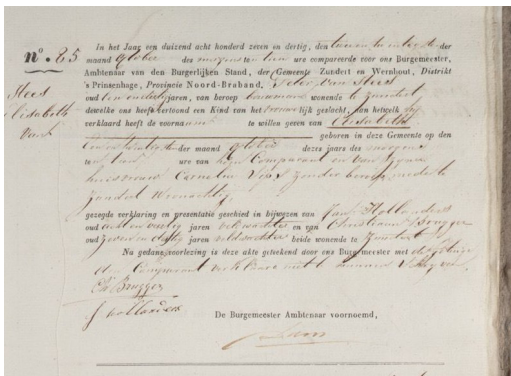 nº. 85
Hees
Elisabeth
van
In het Jaar een duizend acht honderd zeven en dertig, den tweeentwintigste der
maand October des morgens ten tien ure compareerde voor ons Burgemeester,
Ambtenaar van den Burgerlijken Stand, der Gemeente Zundert en Wernhout, Distrikt
's Prinsenhage, Provincie Noord-Braband, Peter van Hees
oud jaren, van beroep wonende te Zundert
dewelke ons heeft vertoond een Kind van het vrouwelijk geslacht, aan hetwelk hij
verklaard heeft de voornaam te willen geven van Elisabeth
geboren in deze Gemeente op den
der maand October dezes jaars des morgens
ten ure van hem Comparant en van zijne
huisvrouw Cornelia zonder beroep mede te
Zundert woonachtig
gezegde verklaring en presentatie geschied in bijwezen van Hollanders
oud acht en veertig jaren veldwachter en van Christiaan Brugger
oud zeven en dertig jaren veldwachter beide wonende te Zundert
Na gedane voorlezing is deze akte geteekend door ons Burgemeester met de getuigen
Comparant verklaard niet te kunnen schrijven.
Brugger
J Hollanders
De Burgemeester Ambtenaar voornoemd,